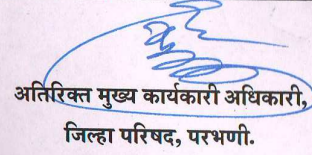 अतिरिक्त मुख्य कार्यकारी अधिकारी,
जिल्हा परिषद, परभणी.